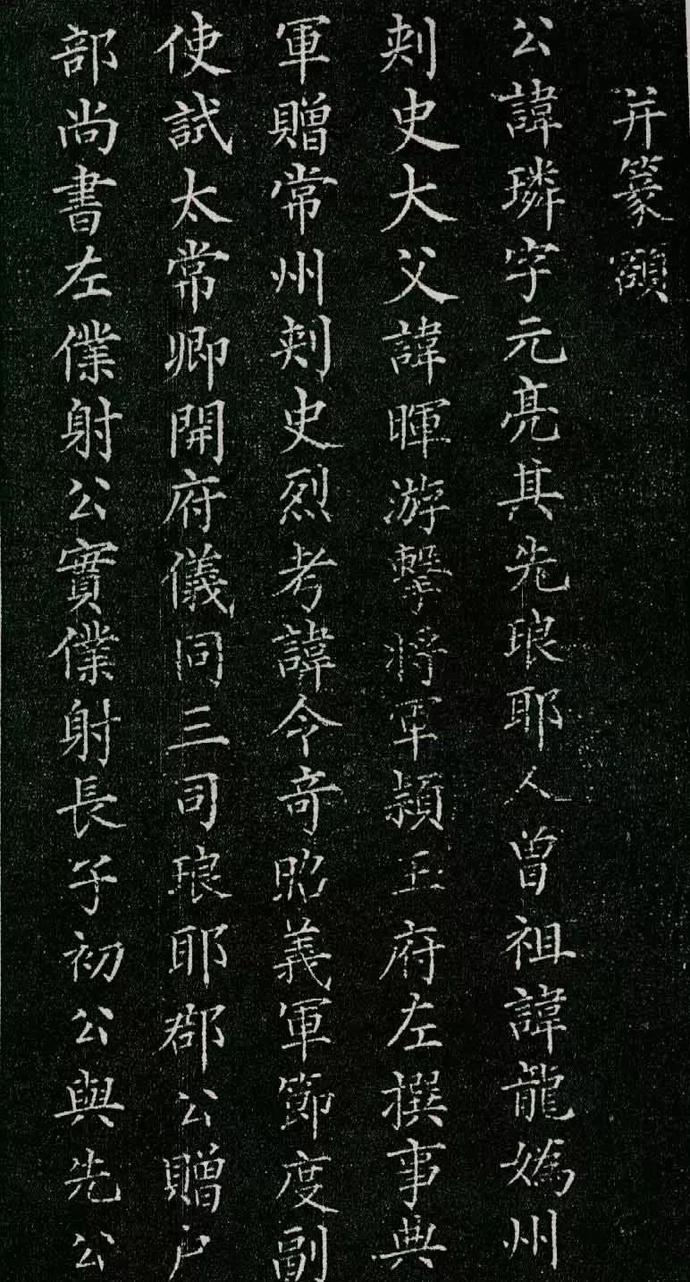 并篆額
公諱璘字元亮其先琅耶人曾祖諱龍媯州
刺史大父諱暉游擊將軍潁王府左撰事典
軍贈常州刺史烈考諱令奇昭義軍節度副
使試太常卿開府儀同三司琅耶郡公贈户
部尚書左僕射公實僕射長子初公與先公